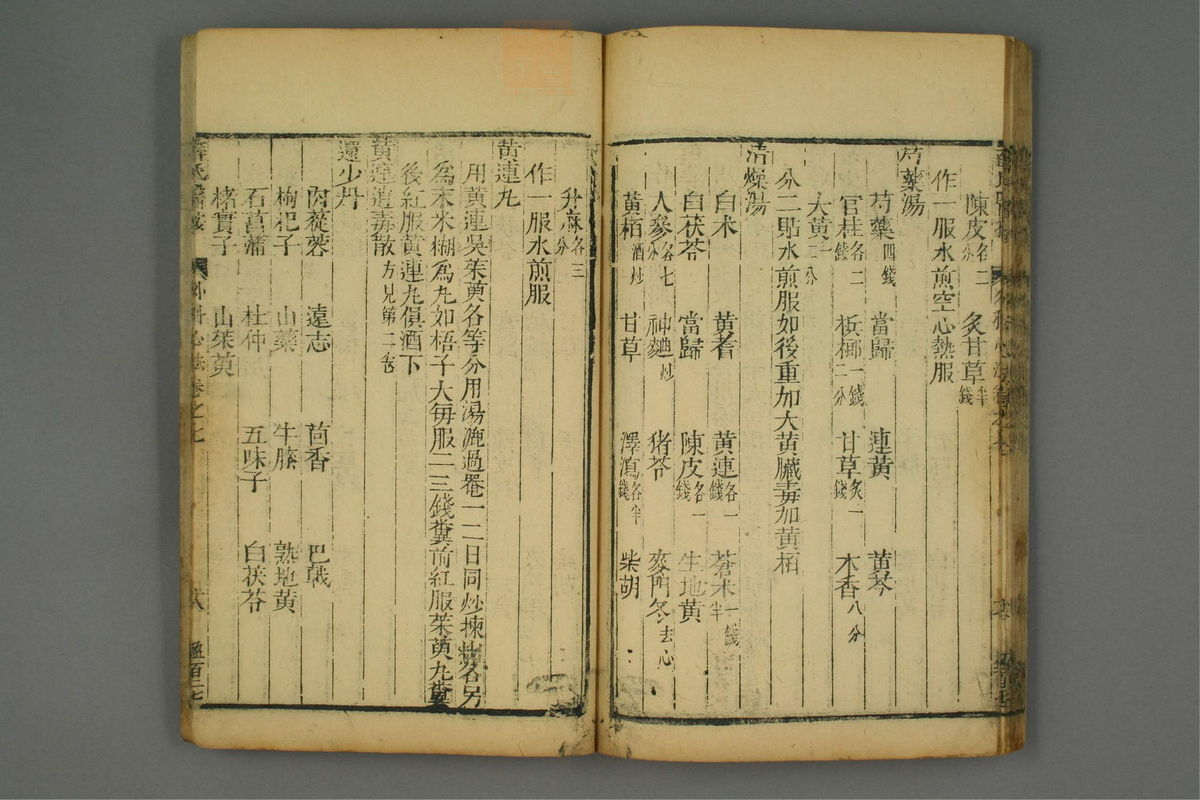 陳皮各二分　炙甘草半錢
作一服水煎空心熱服
芍藥湯
芍藥四錢　當歸　連黃　黃芩
官桂各二錢　梹榔一錢二分　甘草炙一錢　木香八分
大黃一二分
分二貼水煎服如後重加大黃臟毒加黃栢
清燥湯
白朮　黃耆　黃連各一錢　蒼朮一錢半
白茯苓　當歸　陳皮各一錢　生地黃
人參各七分　神麯炒　猪苓　麥門冬去心
黃栢酒炒　甘草　澤瀉各半錢　柴胡
升麻各三分
作一服水煎服
黃連丸
用黃連吳茱萸各等分用湯漉過罨一二日同炒揀出各另
爲末米糊爲丸如梧子大每服二三錢糞前紅服茱萸丸糞
後紅服黃連丸俱酒下
黃連消毒散方見第二卷
還少丹
肉蓯蓉　遠志　茴香　巴戟
枸杞子　山藥　牛膝　熟地黃
石菖蒲　杜仲　五味子　白茯苓
楮實子　山茱萸
薛氏醫按　外科心法卷之七　盈百二七